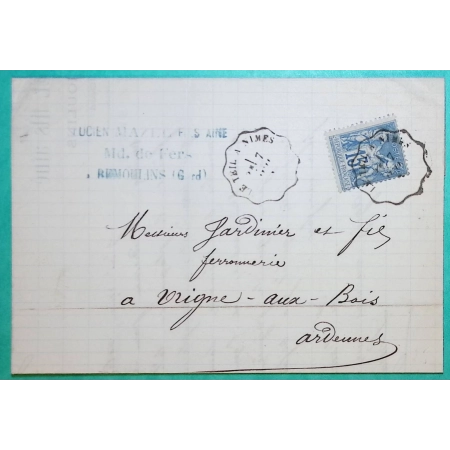 LUCIEN MAZEL FILS AINÉ
Md. de Fers
REMOULINS (Gard)
LE TEIL A NIMES
7
A NIMES
15
Messieurs Jardinier et fils
ferronnerie
a Vrigne-aux-Bois
ardennes